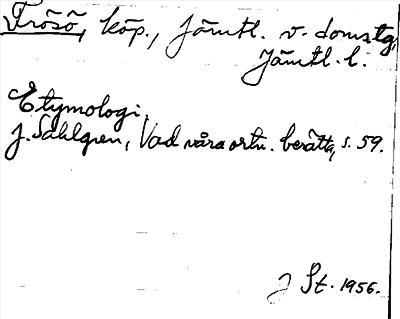 Frösö, köp., Jämtl. v. doms.tg,
Jämtl. l.
Etymologi.
J. Sahlgren, Vad våra ortn. berätta, s. 59.
J St. 1956.